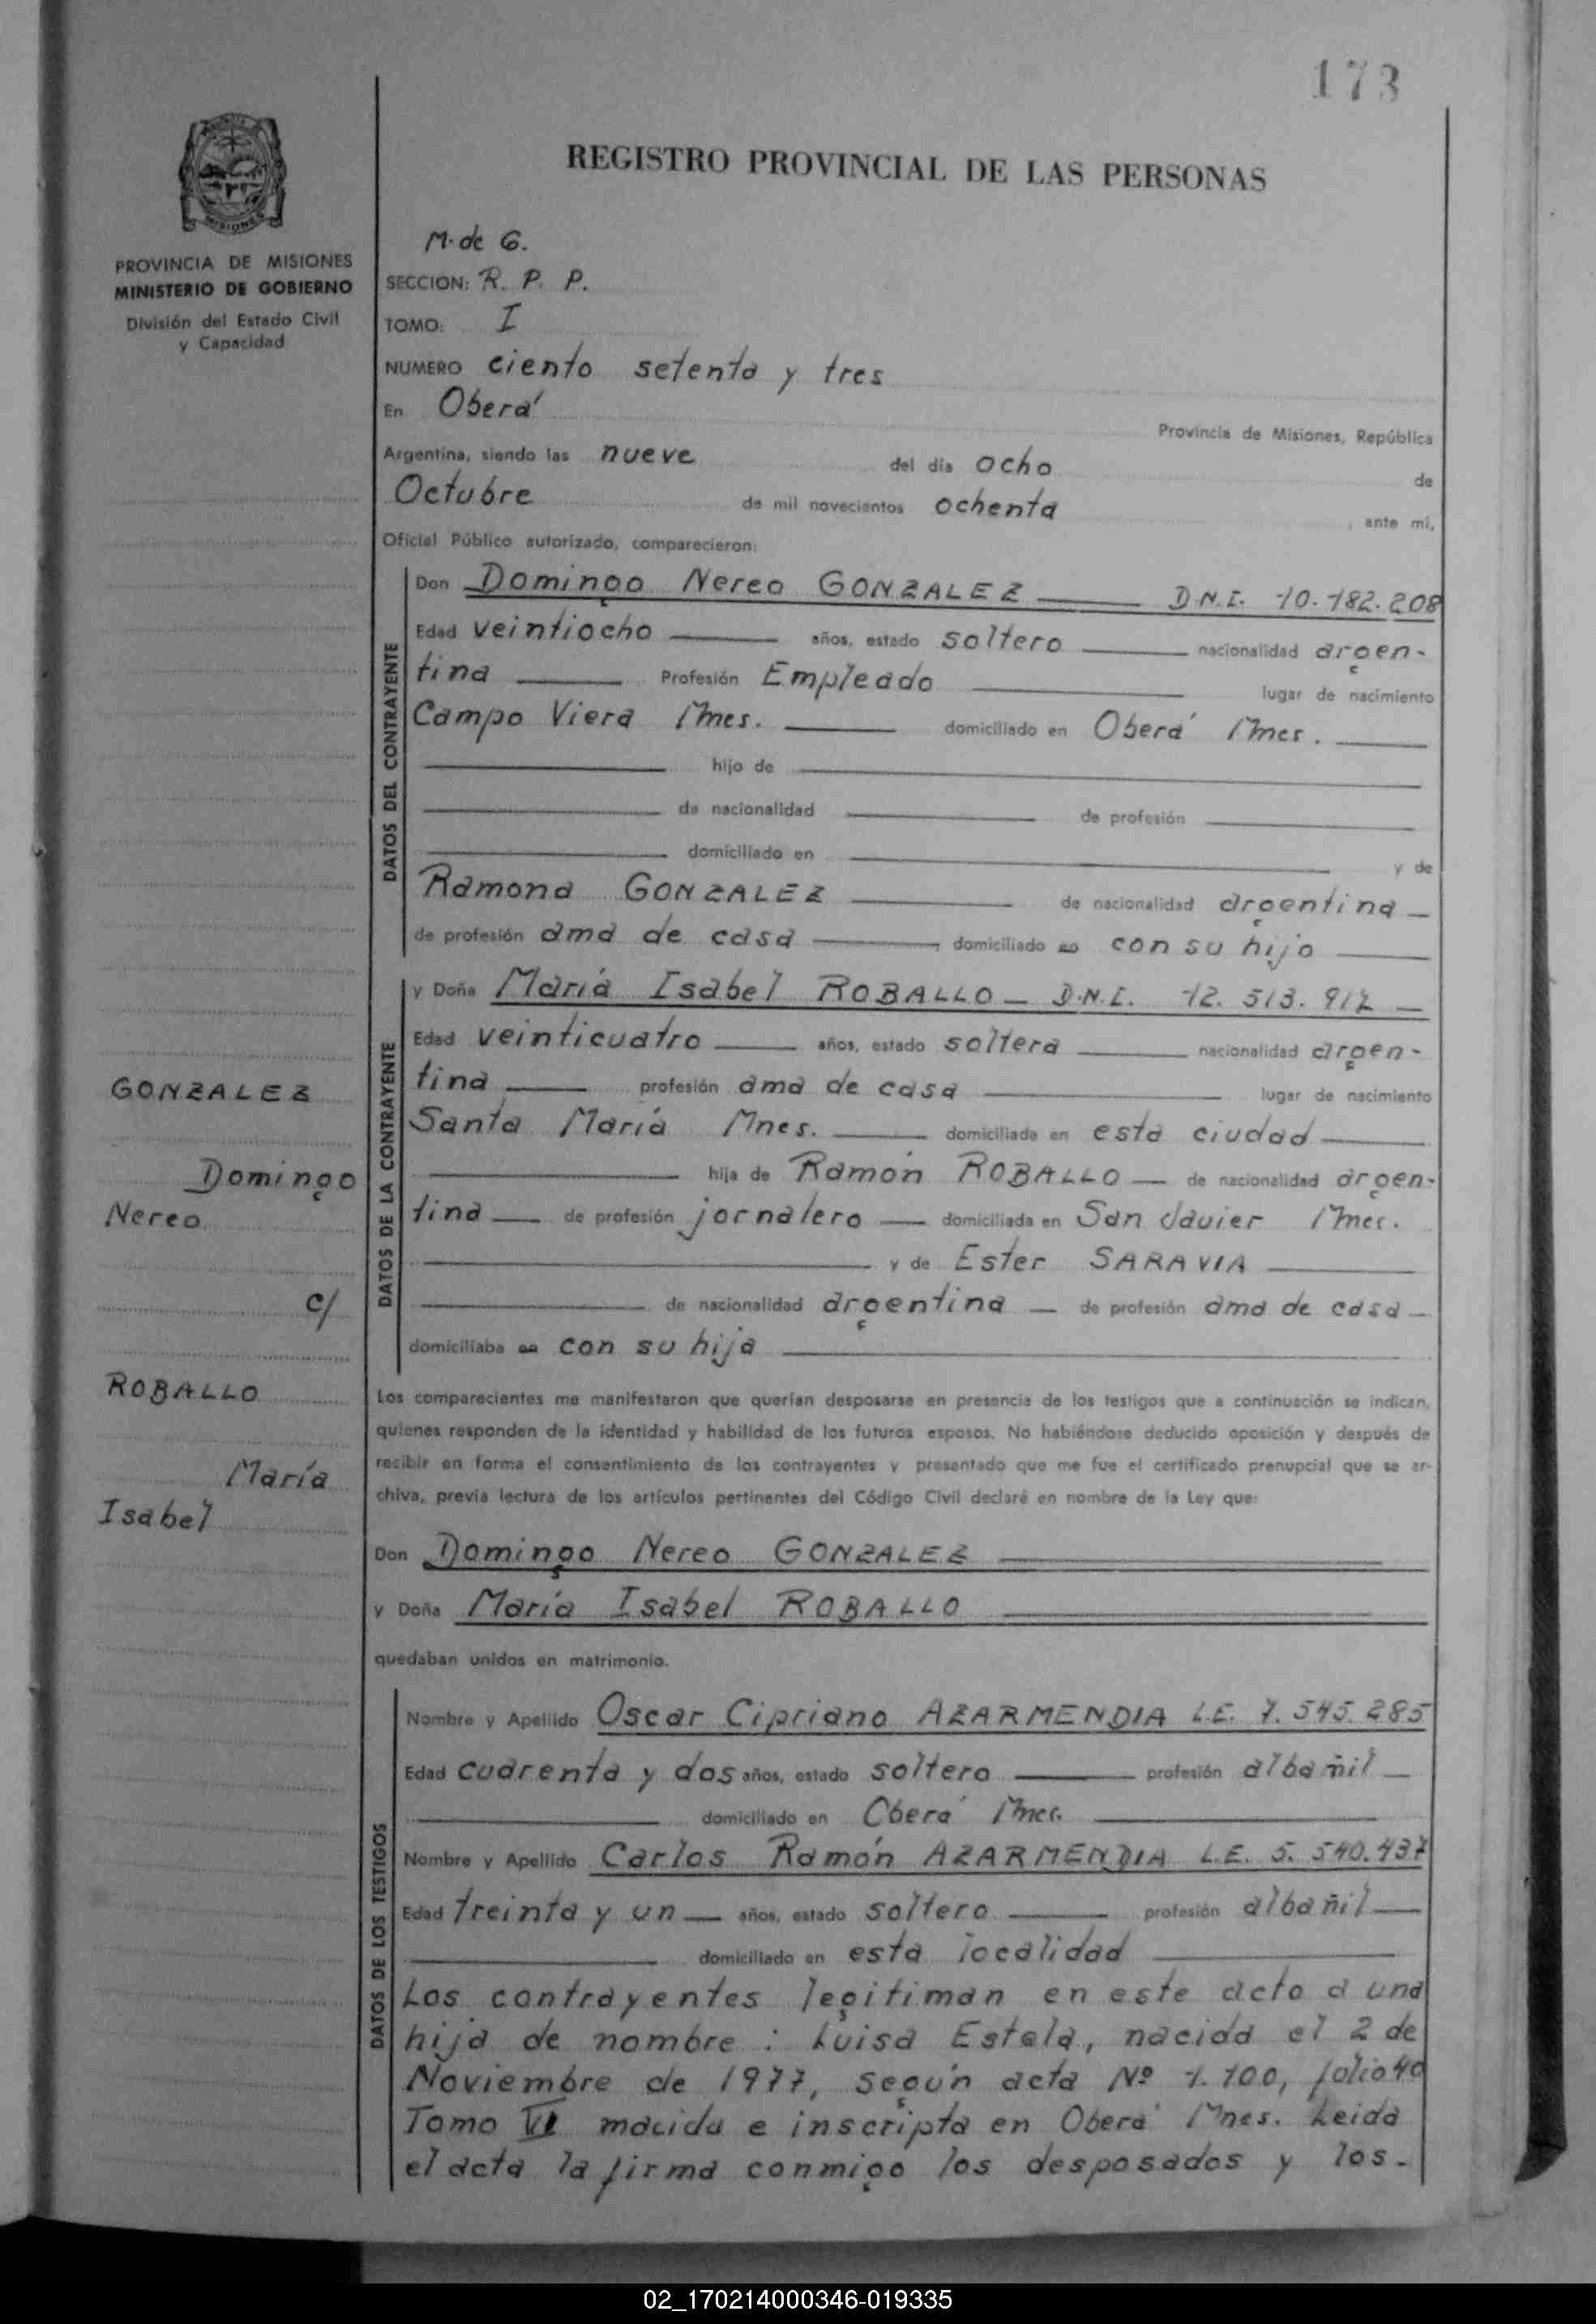 173
REGISTRO PROVINCIAL DE LAS PERSONAS
PROVINCIA DE MISIONES
MINISTERIO DE GOBIERNO
División del Estado Civil
y Capacidad
M. de G.
SECCION: R. P. P.
TOMO: I
NUMERO ciento setenta y tres
En Oberá
Provincia de Misiones, República
Argentina, siendo las nueve del día ocho de
Octubre de mil novecientos ochenta, ante mi,
Oficial Público autorizado, comparecieron:
DATOS DEL CONTRAYENTE
Don Domingo Nereo GONZALEZ D.N.I. 10.182.208
Edad veintiocho años, estado soltero nacionalidad argen-
tina Profesión Empleado lugar de nacimiento
Campo Viera Mnes. domiciliado en Oberá Mnes.
hijo de
de nacionalidad de profesión
domiciliado en y de
Ramona GONZALEZ de nacionalidad argentina
de profesión ama de casa domiciliado en con su hijo
DATOS DE LA CONTRAYENTE
y Doña María Isabel ROBALLO D.N.I. 12.513.912
Edad veinticuatro años, estado soltera nacionalidad argen-
tina profesión ama de casa lugar de nacimiento
Santa María Mnes. domiciliada en esta ciudad
hija de Ramón ROBALLO de nacionalidad argen-
tina de profesión jornalero domiciliada en San Javier Mnes.
y de Ester SARAVIA
de nacionalidad argentina de profesión ama de casa
domiciliaba en con su hija
GONZALEZ
Domingo
Nereo
c/
ROBALLO
María
Isabel
Los comparecientes me manifestaron que querían desposarse en presencia de los testigos que a continuación se indican,
quienes responden de la identidad y habilidad de los futuros esposos. No habiéndose deducido oposición y después de
recibir en forma el consentimiento de los contrayentes y presentado que me fue el certificado prenupcial que se ar-
chiva, previa lectura de los artículos pertinentes del Código Civil declaré en nombre de la Ley que:
Don Domingo Nereo GONZALEZ
y Doña María Isabel ROBALLO
quedaban unidos en matrimonio.
DATOS DE LOS TESTIGOS
Nombre y Apellido Oscar Cipriano AZARMENDIA L.E. 7.545.285
Edad cuarenta y dos años, estado soltero profesión albañil
domiciliado en Oberá Mnes.
Nombre y Apellido Carlos Ramón AZARMENDIA L.E. 5.540.437
Edad treinta y un años, estado soltero profesión albañil
domiciliado en esta localidad
Los contrayentes legitiman en este acto a una
hija de nombre: Luisa Estela, nacida el 2 de
Noviembre de 1977, según acta Nº 1.100, folio 40
Tomo VI nacida e inscripta en Oberá Mnes. Leida
el acta la firma conmigo los desposados y los-
02_170214000346-019335